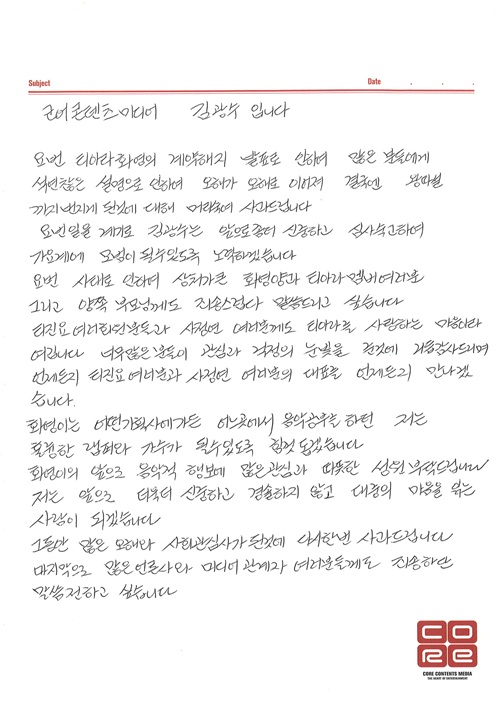 Subject
Date . . .
코어콘텐츠미디어 김광수 입니다
요번 티아라 화영의 계약해지 발표로 인하여 많은 분들에게
석연찮은 설명으로 인하여 오해가 오해로 이어져 결국엔 왕따설
까지 번지게 된것에 대해 머리숙여 사과드립니다
요번일을 계기로 김광수는 앞으로 좀더 신중하고 심사숙고하여
가요계에 모범이 될수있도록 노력하겠습니다
요번 사태로 인하여 상처가 큰 화영양과 티아라 멤버 여러분
그리고 양쪽 부모님께도 죄송스럽다 말씀드리고 싶습니다
티진요 여러회원분들과 사정연 여러분께도 티아라를 사랑하는 마음이라
여깁니다 너무많은분들이 관심과 걱정의 눈빛을 준것에 거듭감사드리며
언제든지 티진요 여러분과 사정연 여러분의 대표를 언제든지 만나겠
습니다.
화영이는 어떤기획사에가든 어느곳에서 음악공부를 하던 저는
훌륭한 랩퍼와 가수가 될수있도록 힘껏 돕겠습니다
화영이의 앞으로 음악적 행보에 많은관심과 따뜻한 성원 부탁드립니다
저는 앞으로 더욱더 신중하고 경솔하지 않고 대중의 마음을 읽는
사람이 되겠습니다
그동안 많은 오해와 사회관심사가 된것에 다시한번 사과드립니다
마지막으로 많은언론사와 미디어 관계자 여러분들게도 죄송하단
말씀전하고 싶습니다
CORE
CORE CONTENTS MEDIA
THE HEART OF ENTERTAINMENT